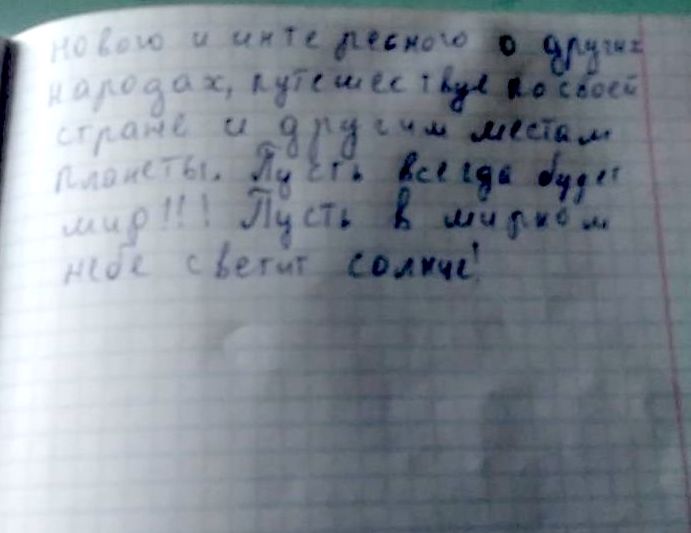 нового и интересного о других
народах, путешествуя по своей
стране и другим местам
планеты. Пусть всегда будет
мир!!! Пусть в мирном
небе светит солнце!